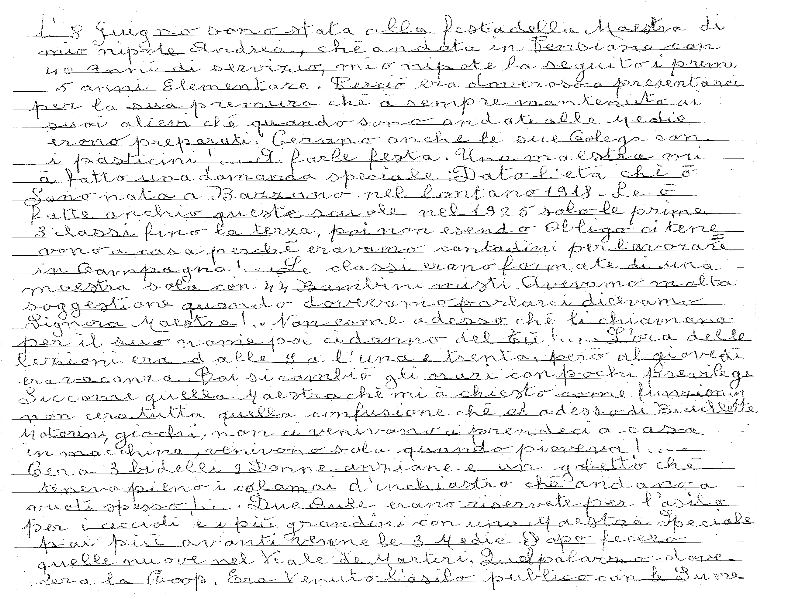 L'8 Giugno sono stata alla festa della Maestra di
mio nipote Andrea, ché andata in Pensione con
40 anni di servizio, mio nipote la seguito i primi
5 anni Elementare. Perciò era doverosa presentarci
per la sua premura ché à sempre mantenuto ai
suoi alievi ché quando sono andati alle Medie
erono preparati. Cerano anche le sue Colege con
i pasticini! A farle festa. Una maestra mi
à fatto una domanda speciale: Dato l'età ché ò
Sono nata a Bazzano nel lontano 1918. Le ò
fatte anchio queste scuole nel 1925 solo le prime
3 classi fino la terza, poi non esendo Obligo ci tene
vono a casa perché eravamo contadini per lavorare
in Campagna! Le classi erono formate di una
maestra sola con 44 Bambini misti Avevamo molta
soggestione quando dovevamo parlarci dicevamo
Signora Maestra!.. Non come adesso ché li chiamano
per il suo nome poi cidanno del tü!... L'ora delle
lezioni era dalle 9 a l'una e trenta, però al giovedì
era vacanza. Poi si cambiò gli orari con pochi previlege
Siccome quella Maestra ché mi à chiesto come funzionava
non cera tutta quella confusione ché cè adesso di Biciclette
Motorini, giochi, non ci venivono a prenderci a casa
in macchina, venivono solo quando pioveva!...
Cera 3 bidelli 2 Donne anziane e un gobetto ché
teneva pieno i calamai d'inchiostro ché andava a
vuoti spesso!... Due Aule erano riservate per l'asilo
per i piccoli e i più grandini con una Maestra Speciale
poi più avanti venne le 3 Medie Dopo fecero
quelle nuove nel Viale de Martiri. Quel palazzo dove
cera la Coop. Era Venuto l'asilo publico con le Suore